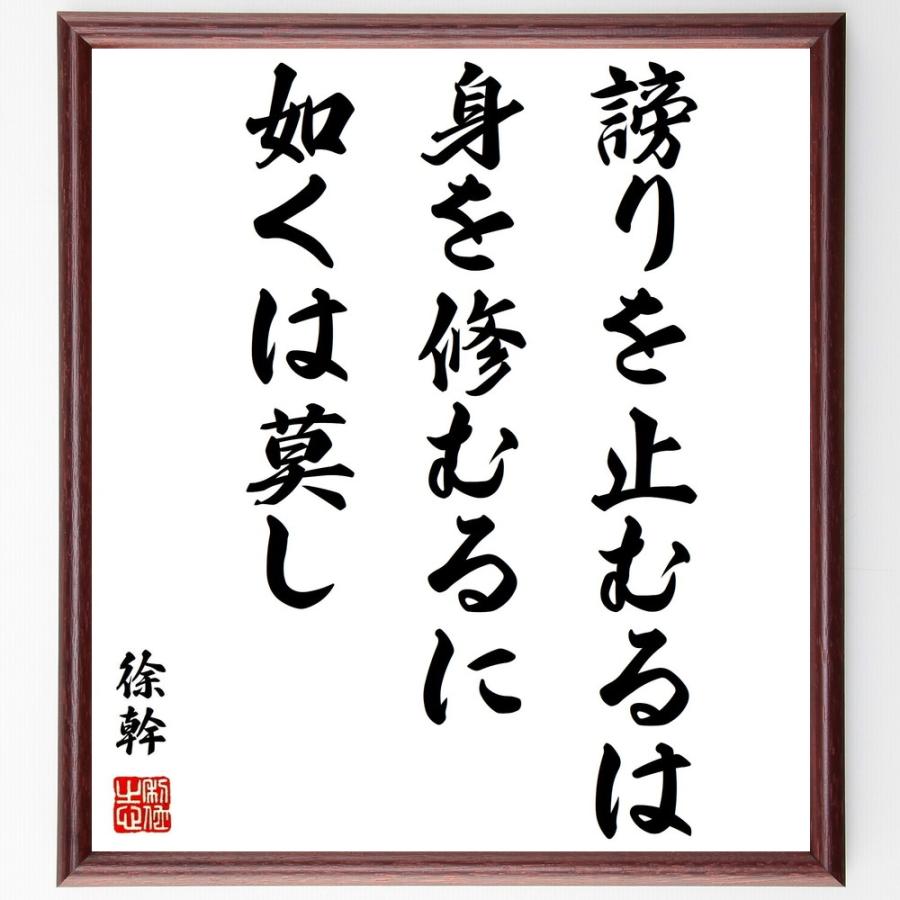 謗りを止むるは
身を修むるに
如くは莫し
徐幹